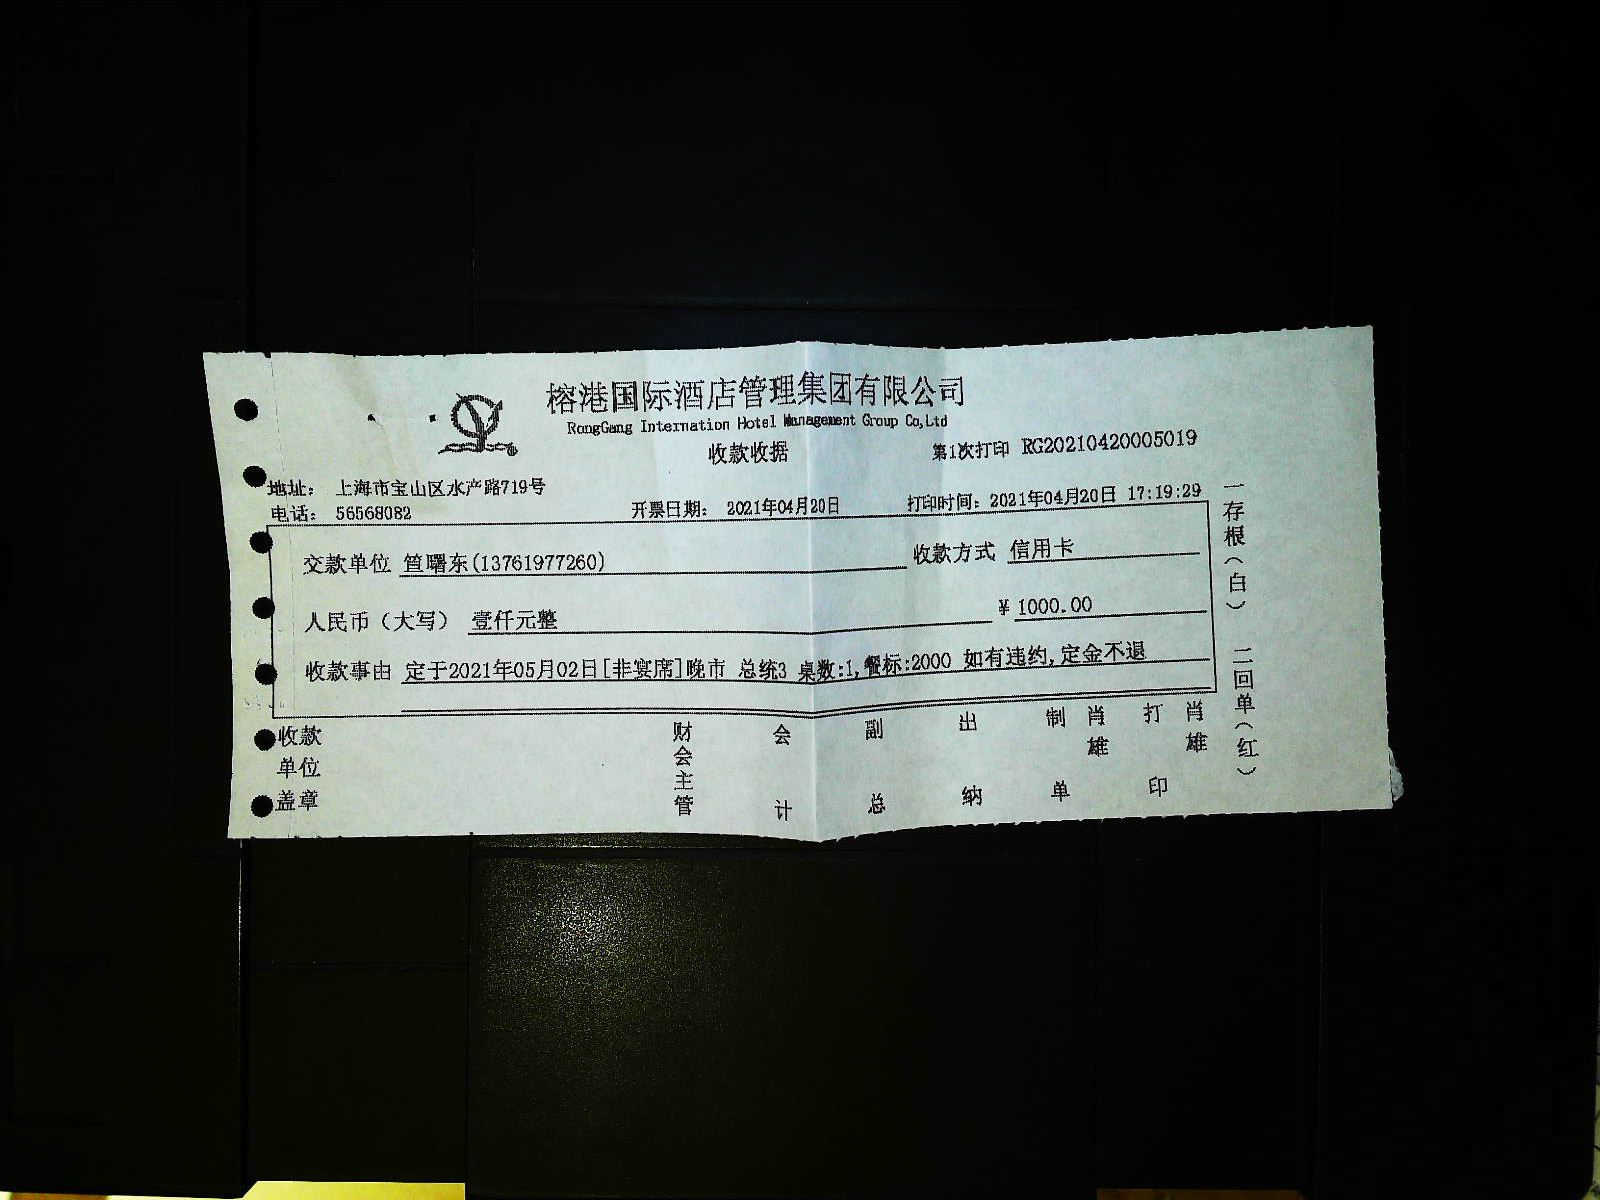 榕港国际酒店管理集团有限公司
RongGang Internation Hotel Management Group Co,Ltd
收款收据
第1次打印 RG20210420005019
地址： 上海市宝山区水产路719号
电话： 56568082
开票日期： 2021年04月20日
打印时间: 2021年04月20日 17:19:29
交款单位 笪曙东(13761977260)
收款方式 信用卡
人民币（大写） 壹仟元整
¥ 1000.00
收款事由 定于2021年05月02日[非宴席]晚市 总统3 桌数:1,餐标:2000 如有违约,定金不退
收款单位盖章
财会主管
会计
副总
出纳
制单
肖雄
打印
肖雄
一存根（白） 二回单（红）